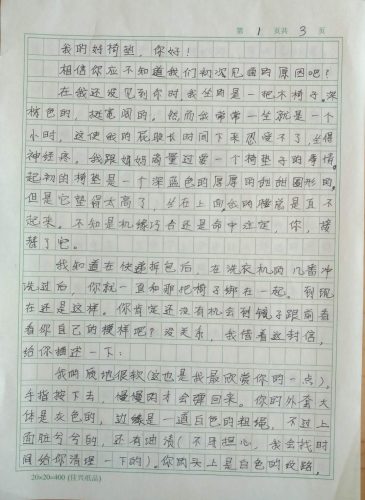 第 1 页共 3 页
我的好椅垫，你好！
相信你应不知道我们初次见面的原因吧？
在我还没见到你时我坐的是一把木椅子。深
棕色的，挺宽阔的，然而我常常一坐就是一个
小时，这使我的屁股长时间下来忍受不了，坐得
神经疼。我跟妈妈商量过要一个椅垫子的事情。
起初的椅垫是一个深蓝色的厚厚的甜甜圈形的，
但是它垫得太高了，坐在上面，我的腰是直不
起来。不知是机缘巧合还是命中注定，你，接
替了它。
我知道在快递拆包后，在洗衣机的几番冲
洗过后，你就一直和那把椅子绑在一起。到现
在还是这样。你肯定还没有机会到镜子跟前看
看你自己的模样吧？没关系，我借着这封信，
给你描述一下：
你的质地很软（这也是我最欣赏你的一点），
手指按下去，慢慢的才会弹回来。你的外套大
体是灰色的，边缘是一道白色的粗绳，不过上
面脏兮兮的，还有油渍（不要担心，我会找时
间给你清理一下的）。你肉头上是白色的纹路，
20×20=400（佳兴纸品）